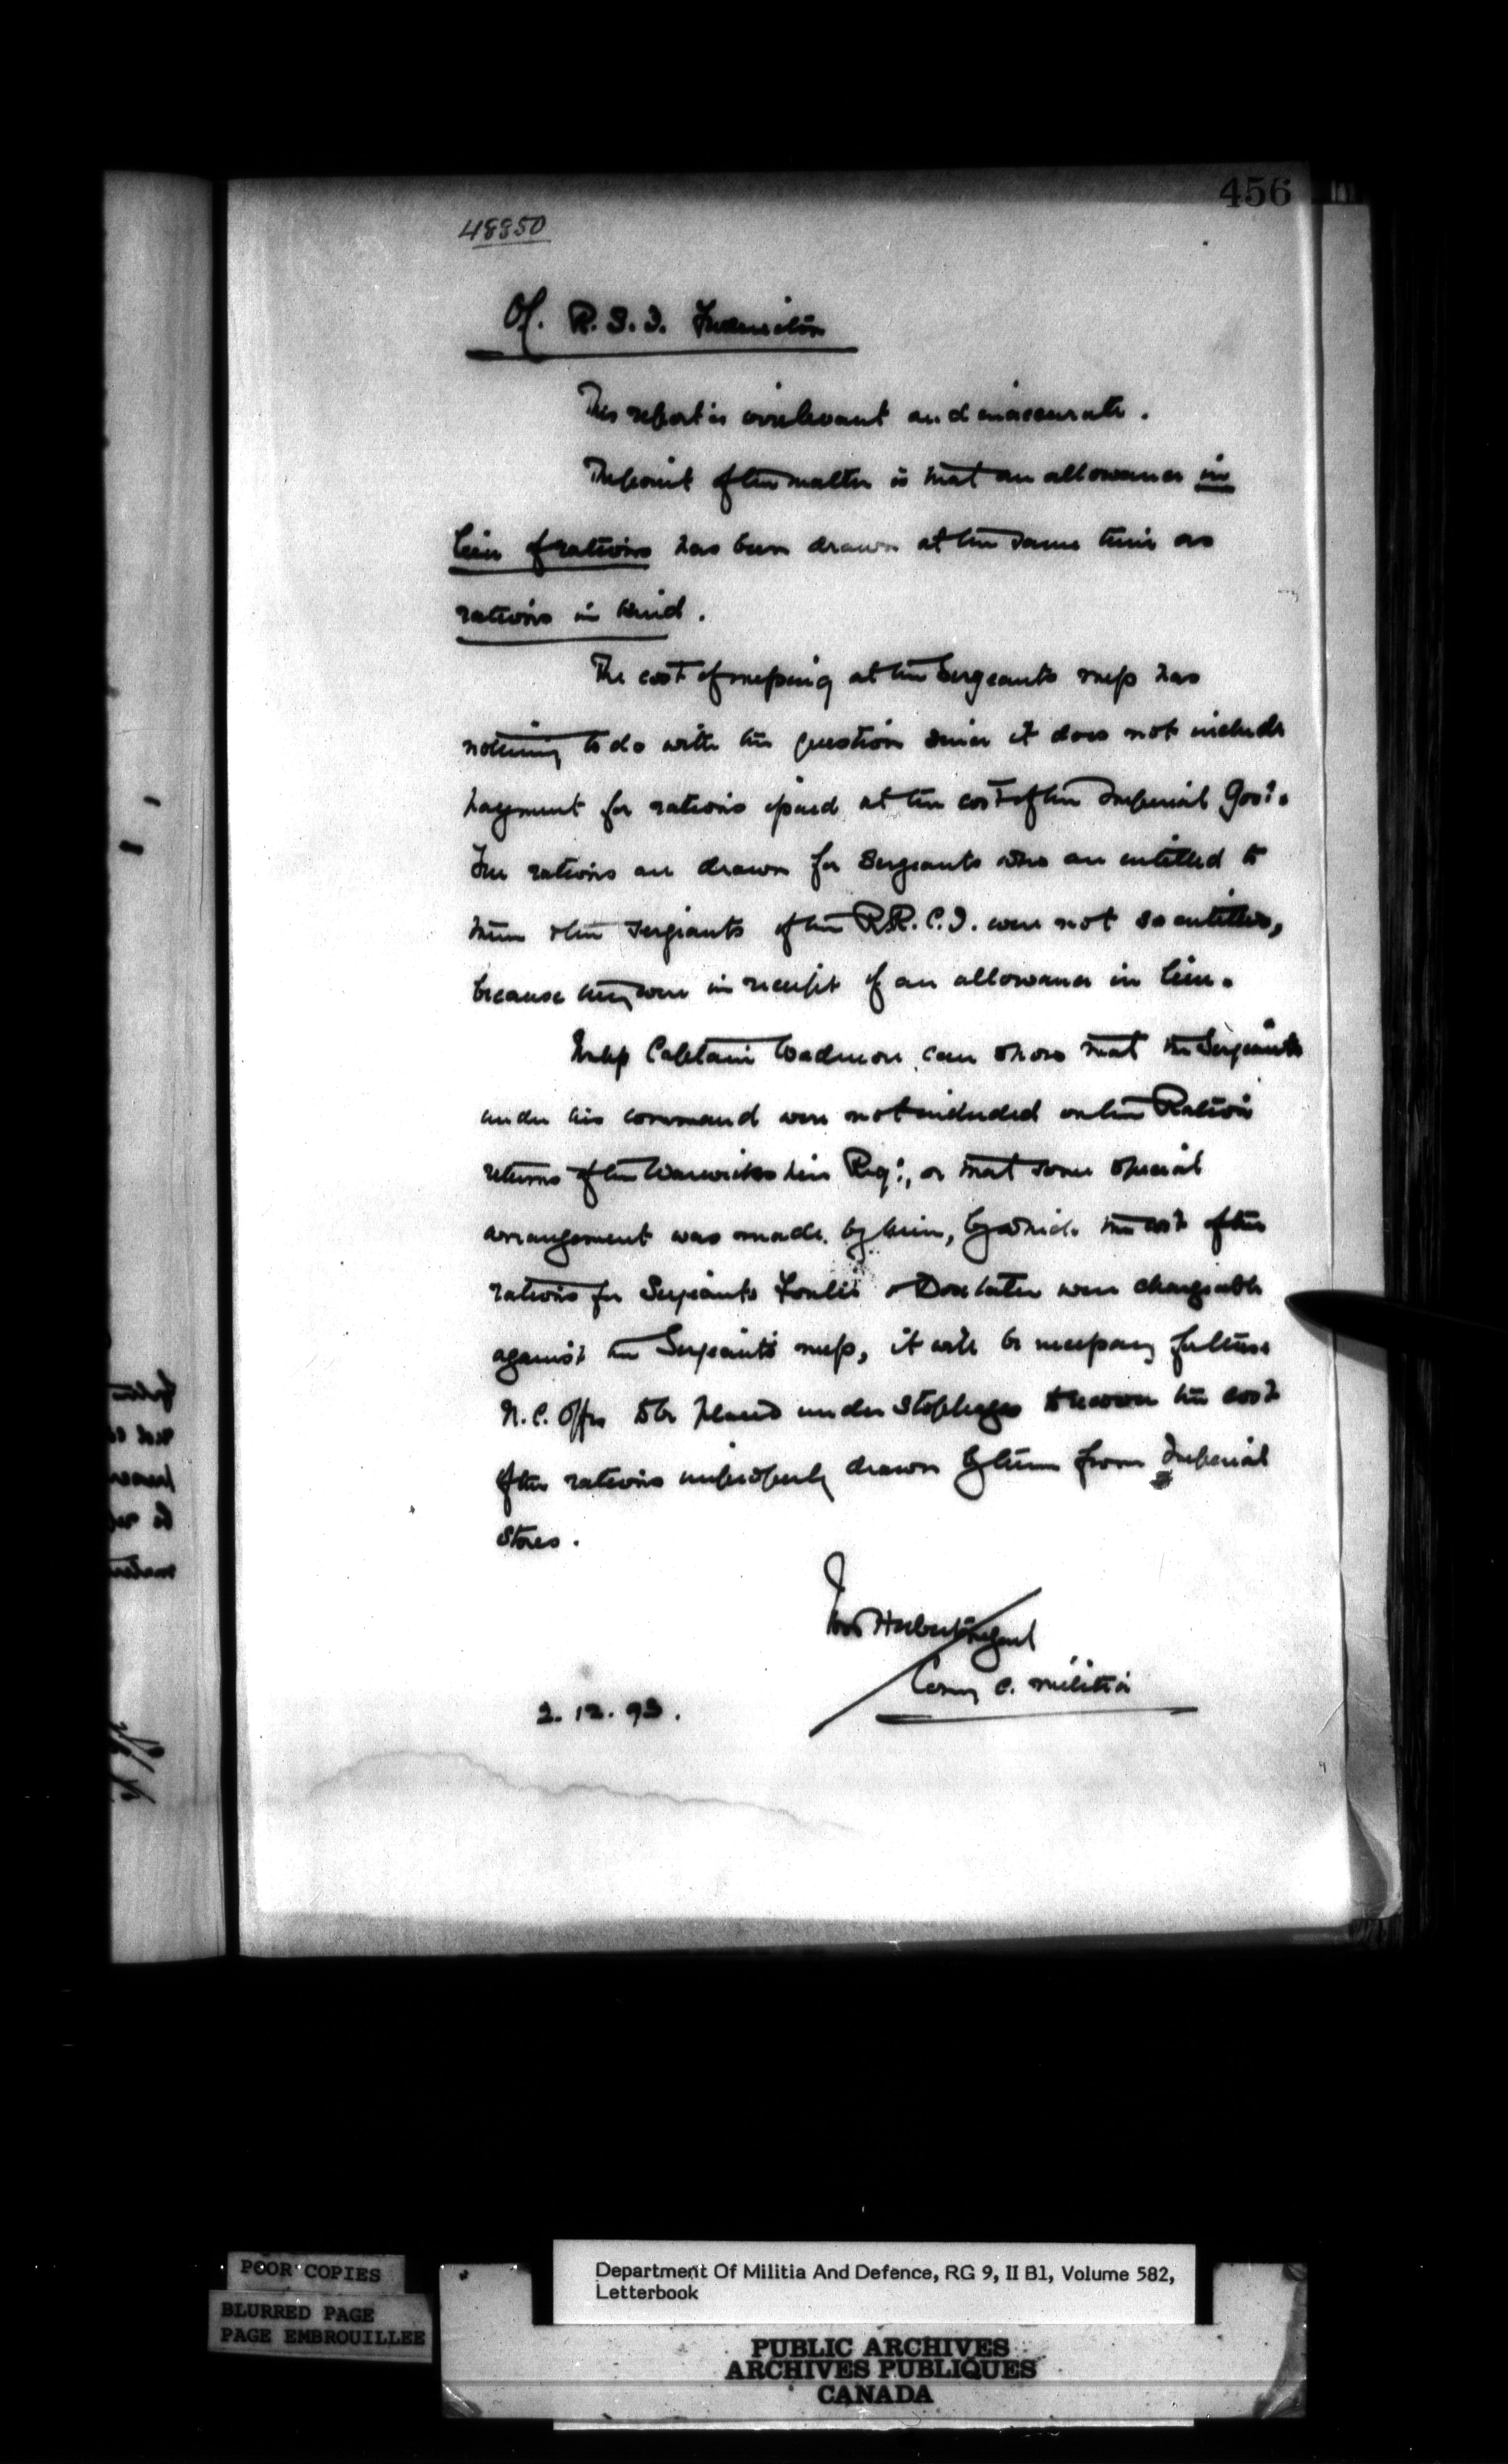 456
48850
Of. R.S.I. Fredericton
This report is irrelevant and inaccurate.
The point of the matter is that an allowance in
lieu of rations has been drawn at the same time as
rations in kind.
The cost of messing at the Sergeants mess has
nothing to do with the question since it does not include
payment for rations issued at the cost of the Imperial Govt.
Free rations are drawn for Sergeants who are entitled to
them & the Sergeants of the R.R.C.I. were not so entitled,
because they were in receipt of an allowance in lieu.
Unless Captain Wadmore can show that the Sergeants
under his command were not included on the Ration
returns of the Warwickshire Regt, or that some special
arrangement was made by him, by which the cost of the
rations for Sergeants Fowlie & Doxtater were chargeable
against the Sergeants mess, it will be necessary for these
N.C. Offrs to be placed under stoppages to recover the cost
of the rations improperly drawn by them from Imperial
Stores.
Ivor Herbert
Comg C. Militia
2.12.93.
POOR COPIES
BLURRED PAGE
PAGE EMBROUILLEE
Department Of Militia And Defence, RG 9, II B1, Volume 582,
Letterbook
PUBLIC ARCHIVES
ARCHIVES PUBLIQUES
CANADA